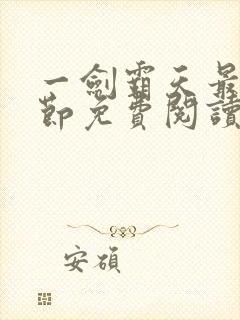 一劍霸天最
節免費閱讀
安碩